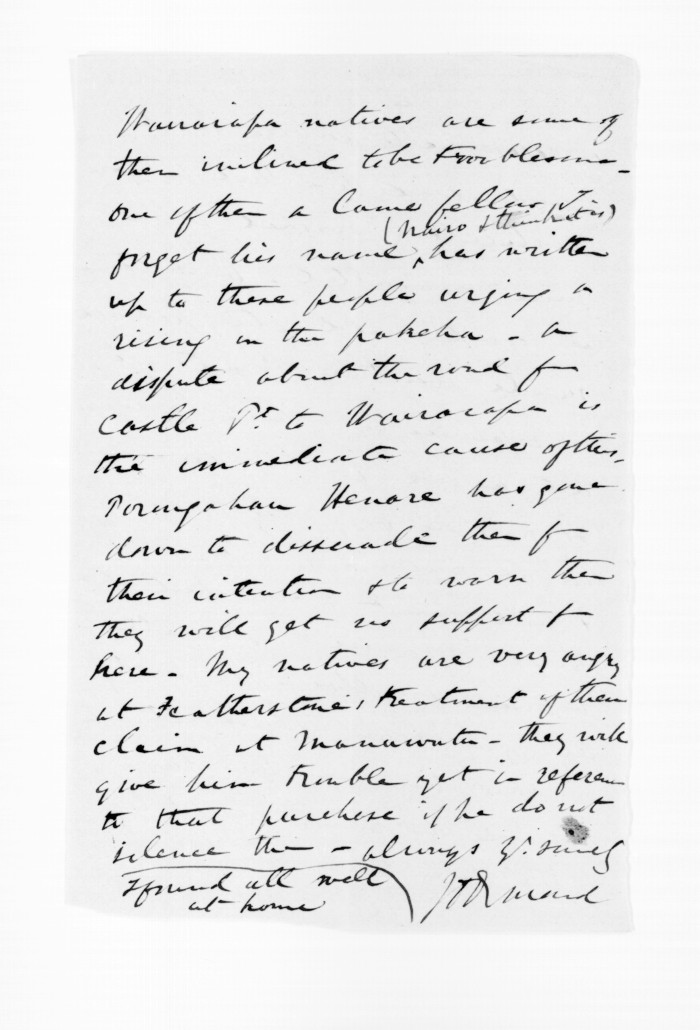 Wairarapa natives are some of
them inclined to be troublesome -
one of them a lame fellow I
(Wairo I think it is)
forget his name, has written
up to these people urging a
rising on the pakeha - a
dispute about the road fm
Castle Pt to Wairarapa is
the immediate cause of this,
Porangahau Henare has gone
down to dissuade them fm
their intention & to warn them
they will get no support fm
here - My natives are very angry
at Featherstone's treatment of their
claim at Manawatu - they will
give him trouble yet in reference
to that purchase if he do not
silence them - always yr. sincely
I found all well
at home
JD Ormond